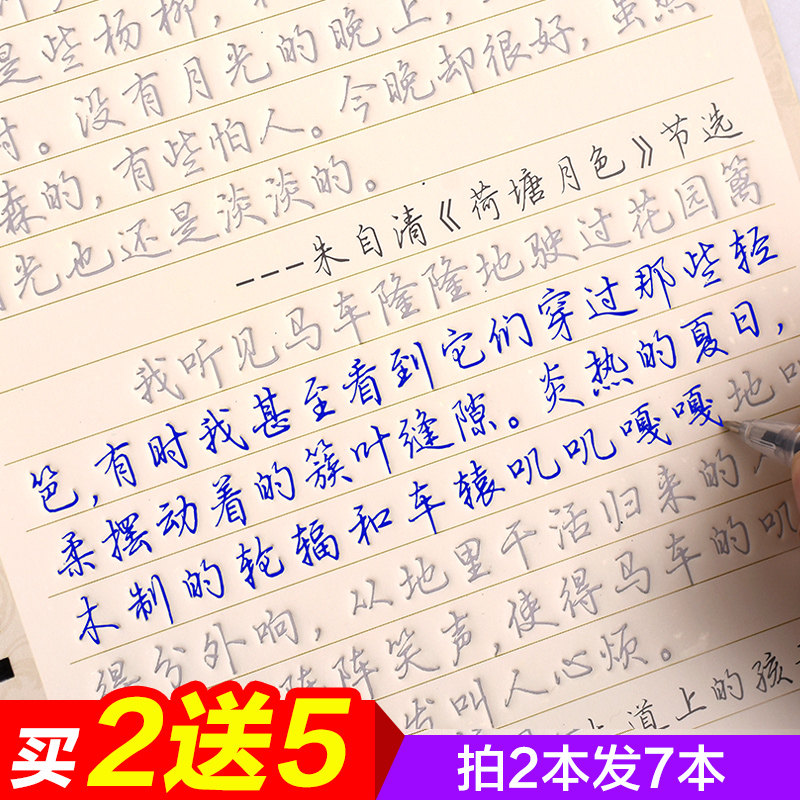 是些杨柳,
。没有月光的晚上,
森的,有些怕人。今晚却很好,虽然
月光也还是淡淡的。
---朱自清《荷塘月色》节选
我听见马车隆隆地驶过花园篱
笆,有时我甚至看到它们穿过那些轻
柔摆动着的簇叶缝隙。炎热的夏日,
木制的轮辐和车辕叽叽嘎嘎地叫
得分外响,从地里干活归来的
阵阵笑声,使得马车的叽
叫人心烦。
道上的孩
买2送5
拍2本发7本